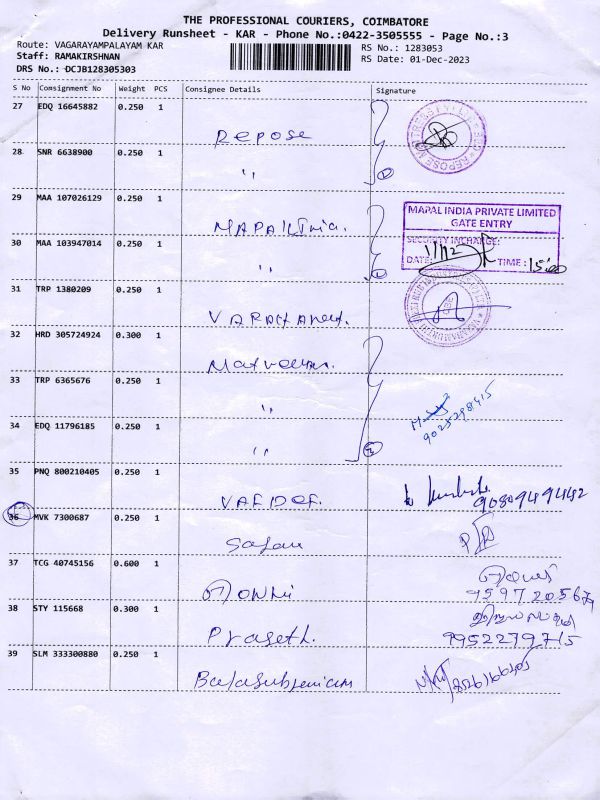 THE PROFESSIONAL COURIERS, COIMBATORE
Delivery Runsheet - KAR - Phone No.:0422-3505555 - Page No.:3
Route: VAGARAYAMPALAYAM KAR
RS No.: 1283053
Staff: RAMAKIRSHNAN
RS Date: 01-Dec-2023
DRS No.: DCJB128305303
S No Consignment No Weight PCS Consignee Details Signature
27 EDQ 16645882 0.250 1
Repose
28 SNR 6638900 0.250 1
"
29 MAA 107026129 0.250 1
MAPAL India.
MAPAL INDIA PRIVATE LIMITED
GATE ENTRY
SECURITY INCHARGE:
DATE: 1/12 TIME: 15:00
30 MAA 103947014 0.250 1
"
31 TRP 1380209 0.250 1
32 HRD 305724924 0.300 1
33 TRP 6365676 0.250 1
"
9025298415
34 EDQ 11796185 0.250 1
"
35 PNQ 800210405 0.250 1
9080949442
36 MVK 7300687 0.250 1
37 TCG 40745156 0.600 1
9597205679
38 STY 115668 0.300 1
Praseth.
9952279715
39 SLM 333300880 0.250 1
Balasubramiam